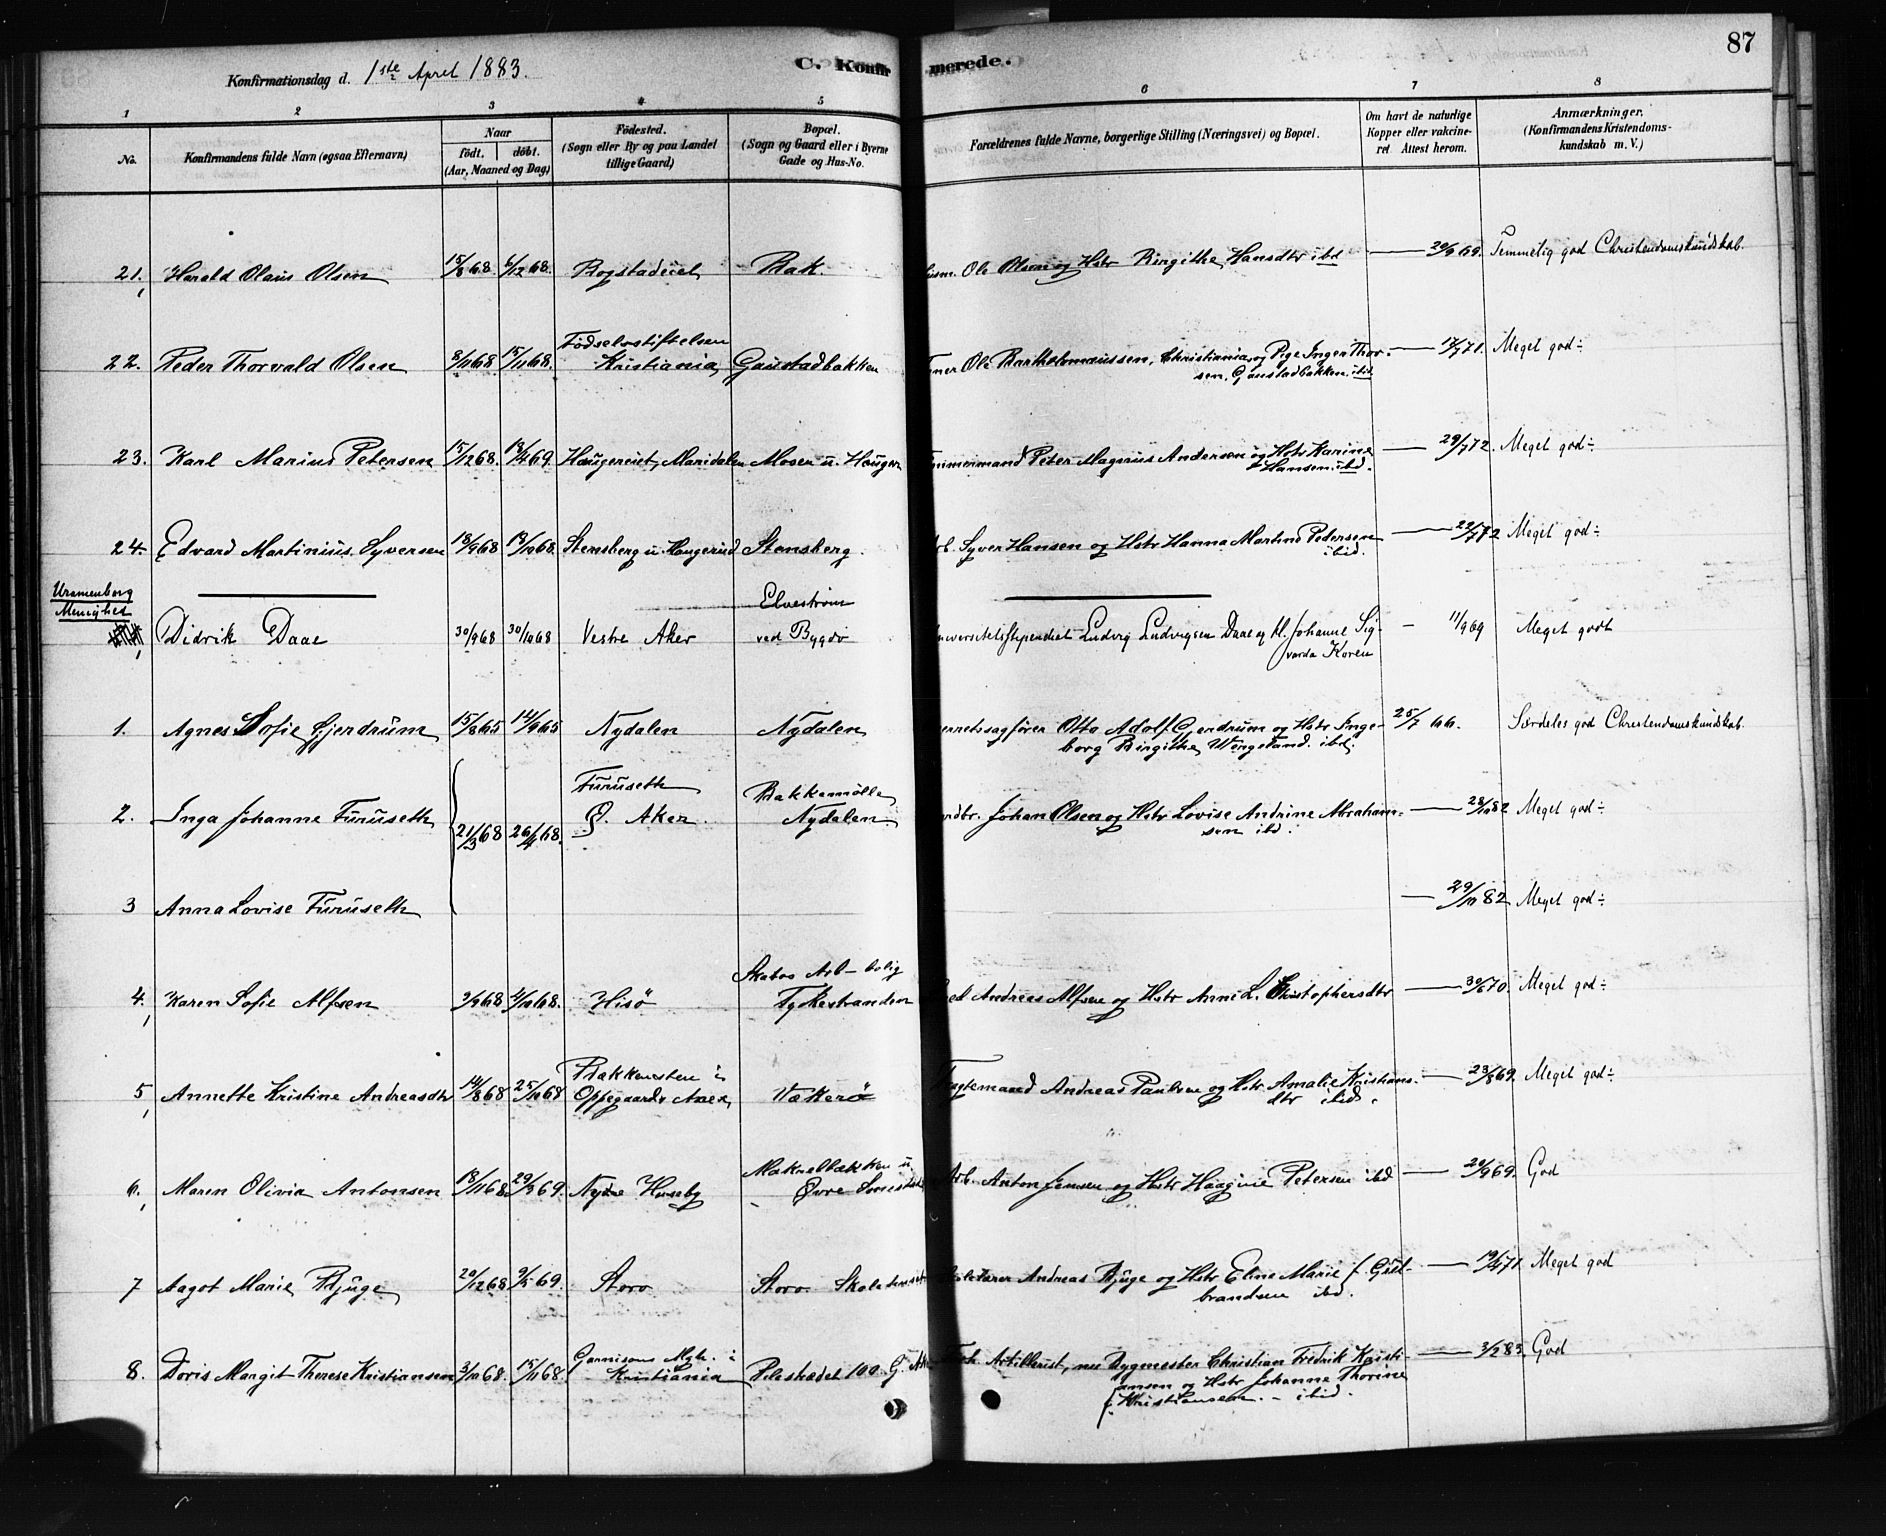 87
Konfirmationsdag d. 1ste April 1883.
C. Konfirmerede.
1 2 3 4 5 6 7 8
No. Konfirmandens fulde Navn (ogsaa Efternavn)
Naar
født. døbt.
(Aar, Maaned og Dag)
Fødested.
(Sogn eller By og paa Landet
tillige Gaard)
Bopæl.
(Sogn og Gaard eller i Byerne
Gade og Hus-No.
Forældrenes fulde Navne, borgerlige Stilling (Næringsvei) og Bopæl.
Om havt de naturlige
Kopper eller vakcine-
ret Attest herom.
Anmærkninger.
(Konfirmandens Kristendoms-
kundskab m. V.)
21. Harald Olaus Olsen 15/8 68 6/12 68. Bogstadeiet Bak Husm. Ole Olsen og Hstr Birgithe Hansdtr ibd — 20/9 69. Temmelig god Christendomskundskab.
22. Peder Thorvald Olsen 8/11 68 15/11 68. Fødselsstiftelsen
Kristiania Gaustadbakken Ole Bartholomæussen, Christiania, og Pige Inger Thor-
sen, Gaustadbakken ibid — 71. Meget god ÷
23. Karl Marius Petersen 15/12 68. 18/4 69. Haugereiet, Maridalen Mosen u. Haugen Tømmermand Peter Magnus Andersen og Hstr Karine
Hansen ibd. — 29/7 72. Meget god ÷
24. Edvard Martinius Syversen 18/9 68 18/10 68. Stensberg u. Haugerud Stensberg. Arb. Syver Hansen og Hstr Hanna Martine Pedersen
ibid. — 29/7 72 Meget god ÷
Uranienborg
Menighed
Didrik Daae 30/9 68 30/10 68 Vestre Aker Elvestrøm
ved Bygdø Universitetsstipendiat Ludvig Ludvigsen Daae og Hl. Johanne Sig-
varda Koren — 11/9 69 Meget godt
1. Agnes Sofie Gjerdrum 15/8 65 14/9 65 Nydalen Nydalen Overretssagfører Otto Adolf Gjerdrum og Hstr Inge-
borg Birgithe Wingstand. ibd. 25/7 66. Særdeles god Christendomskundskab.
2. Inga Johanne Furuseth 21/3 68 26/4 68. Furuseth
Ø. Aker. Bakkemølla
Nydalen. Johan Olsen og Hstr Lovise Andrine Abraham-
sen ibd. — 28/10 82 Meget god ÷
3 Anna Lovise Furuseth — 29/11 82 Meget god ÷
4. Karen Sofie Alfsen 68 68. Hisö Skabos Arb-bolig
Tykestranden Andreas Alfsen og Hstr Anne L. Christophersdtr — 30/6 70. Meget god ÷
5 Annette Kristine Andreasdtr 14/8 68 25/10 68 Bakkensten i
Oppegaards Anex Vækerö Fragtemand Andreas Paulsen og Hstr Amalie Kristians-
dtr ibid. — 23/8 69. Meget god ÷
6. Maren Olivia Antonsen 18/11 68 29/3 69. Nedre Huseby Makrelbækken u.
Øvre Smestad Arb. Anton Jensen og Hstr Haagine Petersen ibd — 20/9 69. God
7 Aagot Marie Bjuge 20/12 68 9/5 69. Storo Storo Skole Skolelærer Andreas Bjuge og Hstr Eline Marie f. Gul-
brandsen ibd. — 19/4 71 Meget god
8. Doris Margit Therese Kristiansen 3/10 68. 15/11 68. Garnisons Mgh. i
Kristiania Pilestrædet 100. G. Aker Artillerist, nu Bygmester Christian Fredrik Kristi-
ansen og Hstr Johanne Thorine
f. Kristiansen. — ibid. — 3/2 83. God